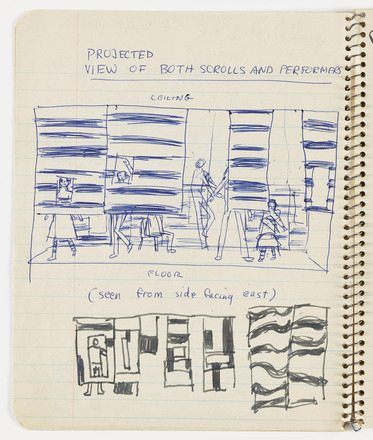 PROJECTED
VIEW OF BOTH SCROLLS AND PERFORMERS
CEILING
FLOOR
(seen from side facing east)